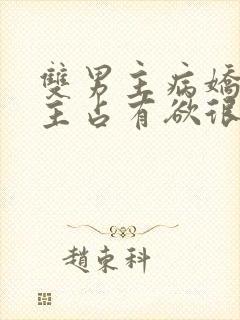 雙男主病嬌
主占有欲很
趙東科